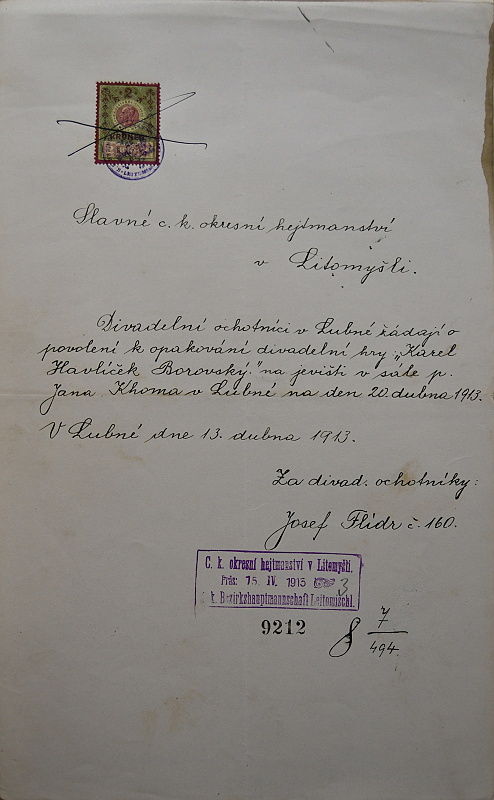 2
KRONEN
Slavné c. k. okresní hejtmanství
v Litomyšli.
Divadelní ochotníci v Lubné žádají o
povolení k opakování divadelní hry „Karel
Havlíček Borovský." na jevišti v sále p.
Jana Khoma v Lubné na den 20. dubna 1913.
V Lubné dne 13. dubna 1913.
Za divad. ochotníky:
Josef Flídr č. 160.
C. k. okresní hejtmanství v Litomyšli.
Präs: 15 IV. 1913 3
k. Bezirkshauptmannschaft Leitomischl.
9212
8 7
494.